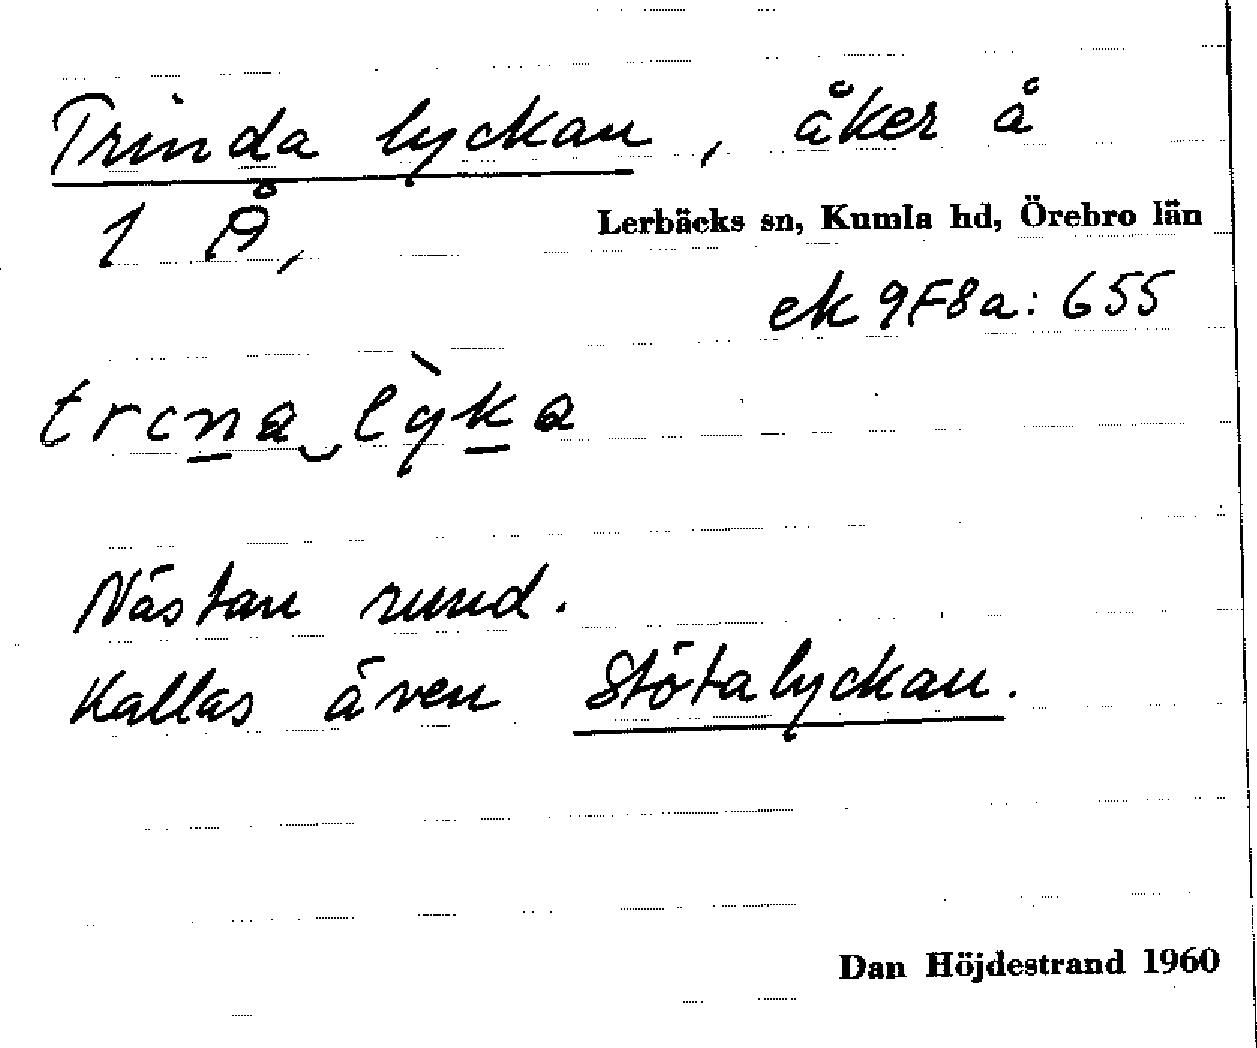 Trinda lyckan, åker å
1 Å,
Lerbäcks sn, Kumla hd, Örebro län
ek 9F8a: 655
trına‿lỳka
Nästan rund.
Kallas även Stötalyckan.
Dan Höjdestrand 1960